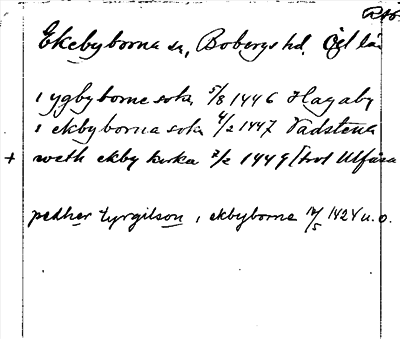 RAÖ
Ekebyborna sn, Bobergs hd. Ögl län
i ygbyborne sokn 5/8 1446 Hagaby
i ekbyborna sokn 4/2 1447 Vadstena
+ weth ekby kirka 2/2 1449 [trol Ulfåsa
pædher tyrgilson i ekbyborne 12/5 1424 u. o.